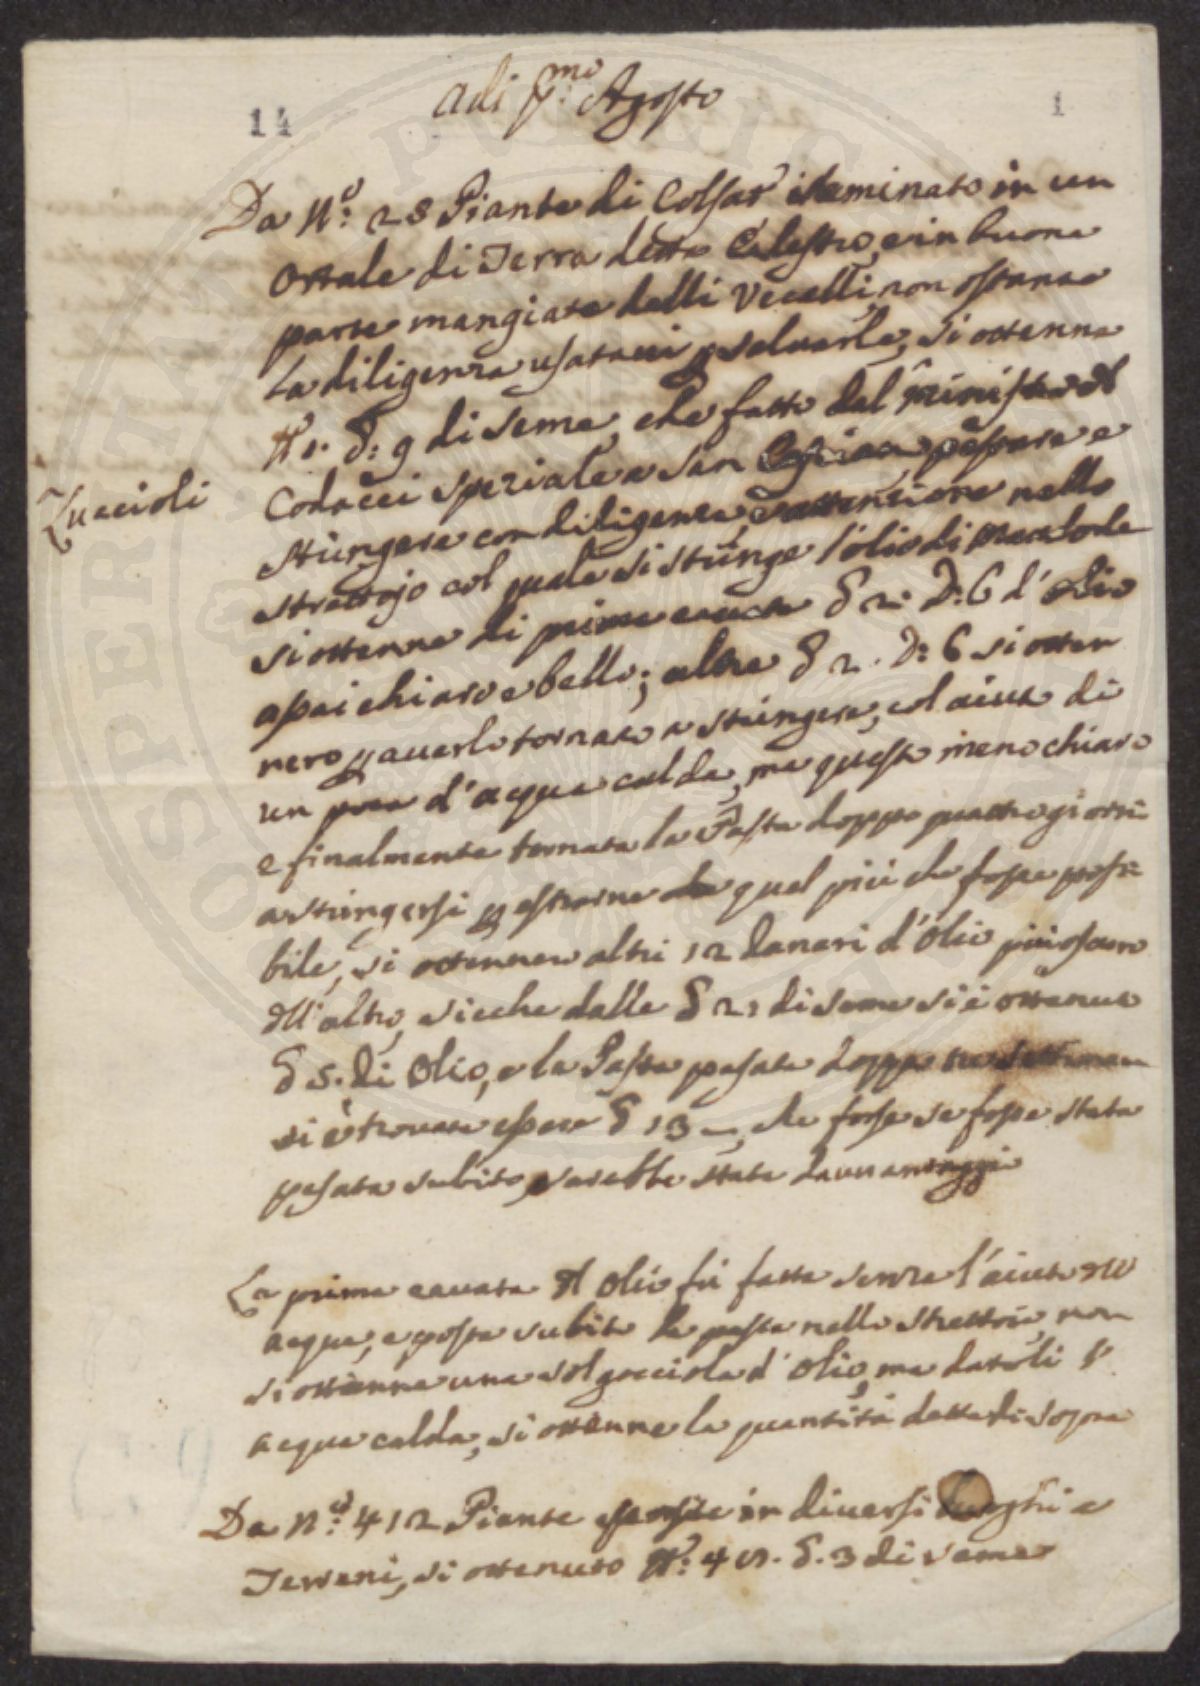 14
1
adi p.mo Agosto
Da N.o: 28 Piante di Colsat seminato in un
Ottale di Terra detto Celestro, e in buona
parte mangiate dalli Vccelli, non ostante
La diligenza usataui p saluarle, si ottenne
di seme, che fatto dal
Zuccioli
Codacci speziale a San pestare e
stringere con diligenza, e attenzione nello
strettojo col quale si stringe l'olio di Mandorle
si ottenne di prima cauata δ 2. D: 6 d' Olio
assai chiaro e bello; altre δ 2. D: 6 si otten
nero p auerlo tornato a stringere, col aiuto di
un poca d'acqua calda, ma questo meno chiaro
e finalmente tornata la Pasta doppo quattro giorni
a stringersi p estrarne quel più che fosse possi
bile, si ottenner altri 12 danari d'Olio più oscuro
dll'altro, sicche dalle δ 21 di seme si è ottenuto
δ 5. di Olio, e la Pasta pesata doppo tre settimane
si è trouata essere δ 13 —, che forse se fosse stata
pesata subito, sarebbe stata dauuantaggio
La prima cauata dl Olio fu fatta senza l'aiuto dll'
acqua, e posta subito la pasta nello strettoio, non
si ottenne una sol gocciola d' Olio, ma datoli l'
acqua calda, si ottenne la quantità detta di sopra
Da N.o: 412 Piante in diuersi Luoghi e
Terreni, si ottenuto 3 di seme